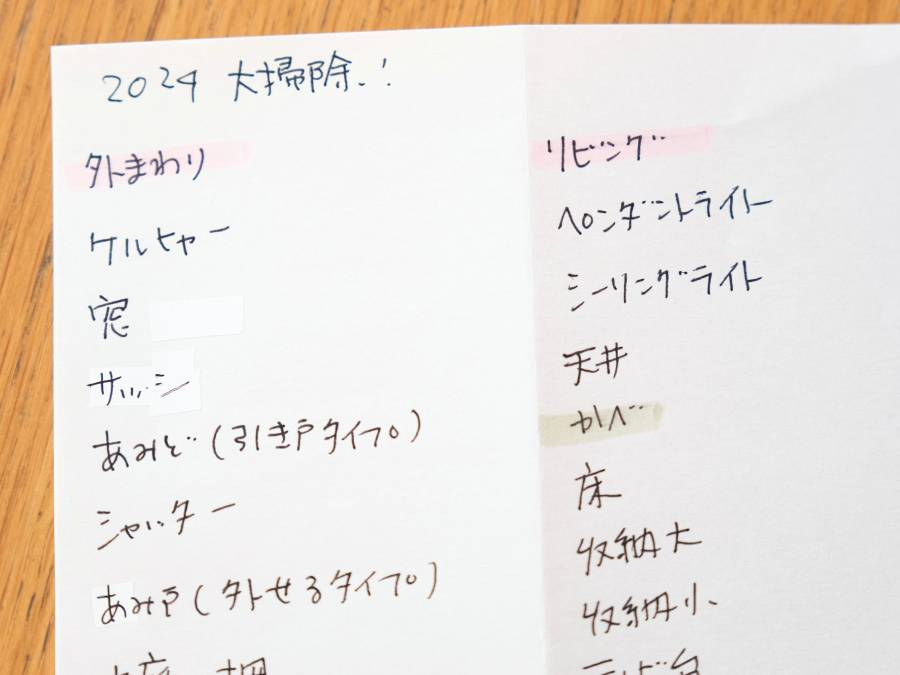 2024 大掃除!
外まわり
ケルヒャー
窓
サッシ
あみど(引き戸タイプ)
シャッター
あみ戸(外せるタイプ)
リビング
ペンダントライト
シーリングライト
天井
かべ
床
収納大
収納小
テレビ台